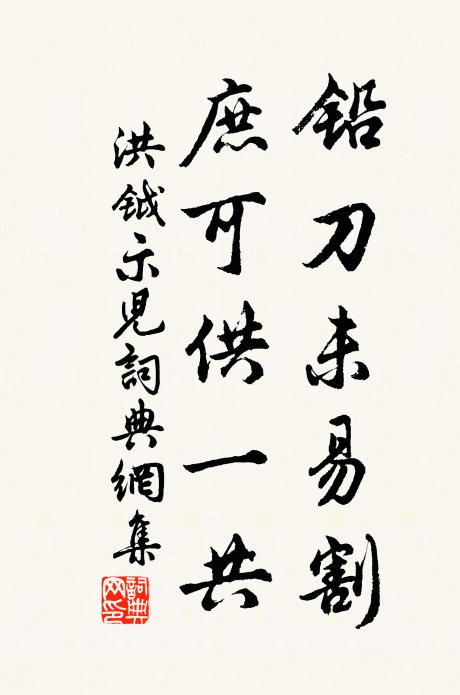 铅刀未易割
庶可供一共
洪钺示兒詞典網集
詞典網印